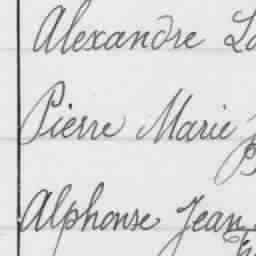 Alexandre
Pierre Marie
Alphonse Jean